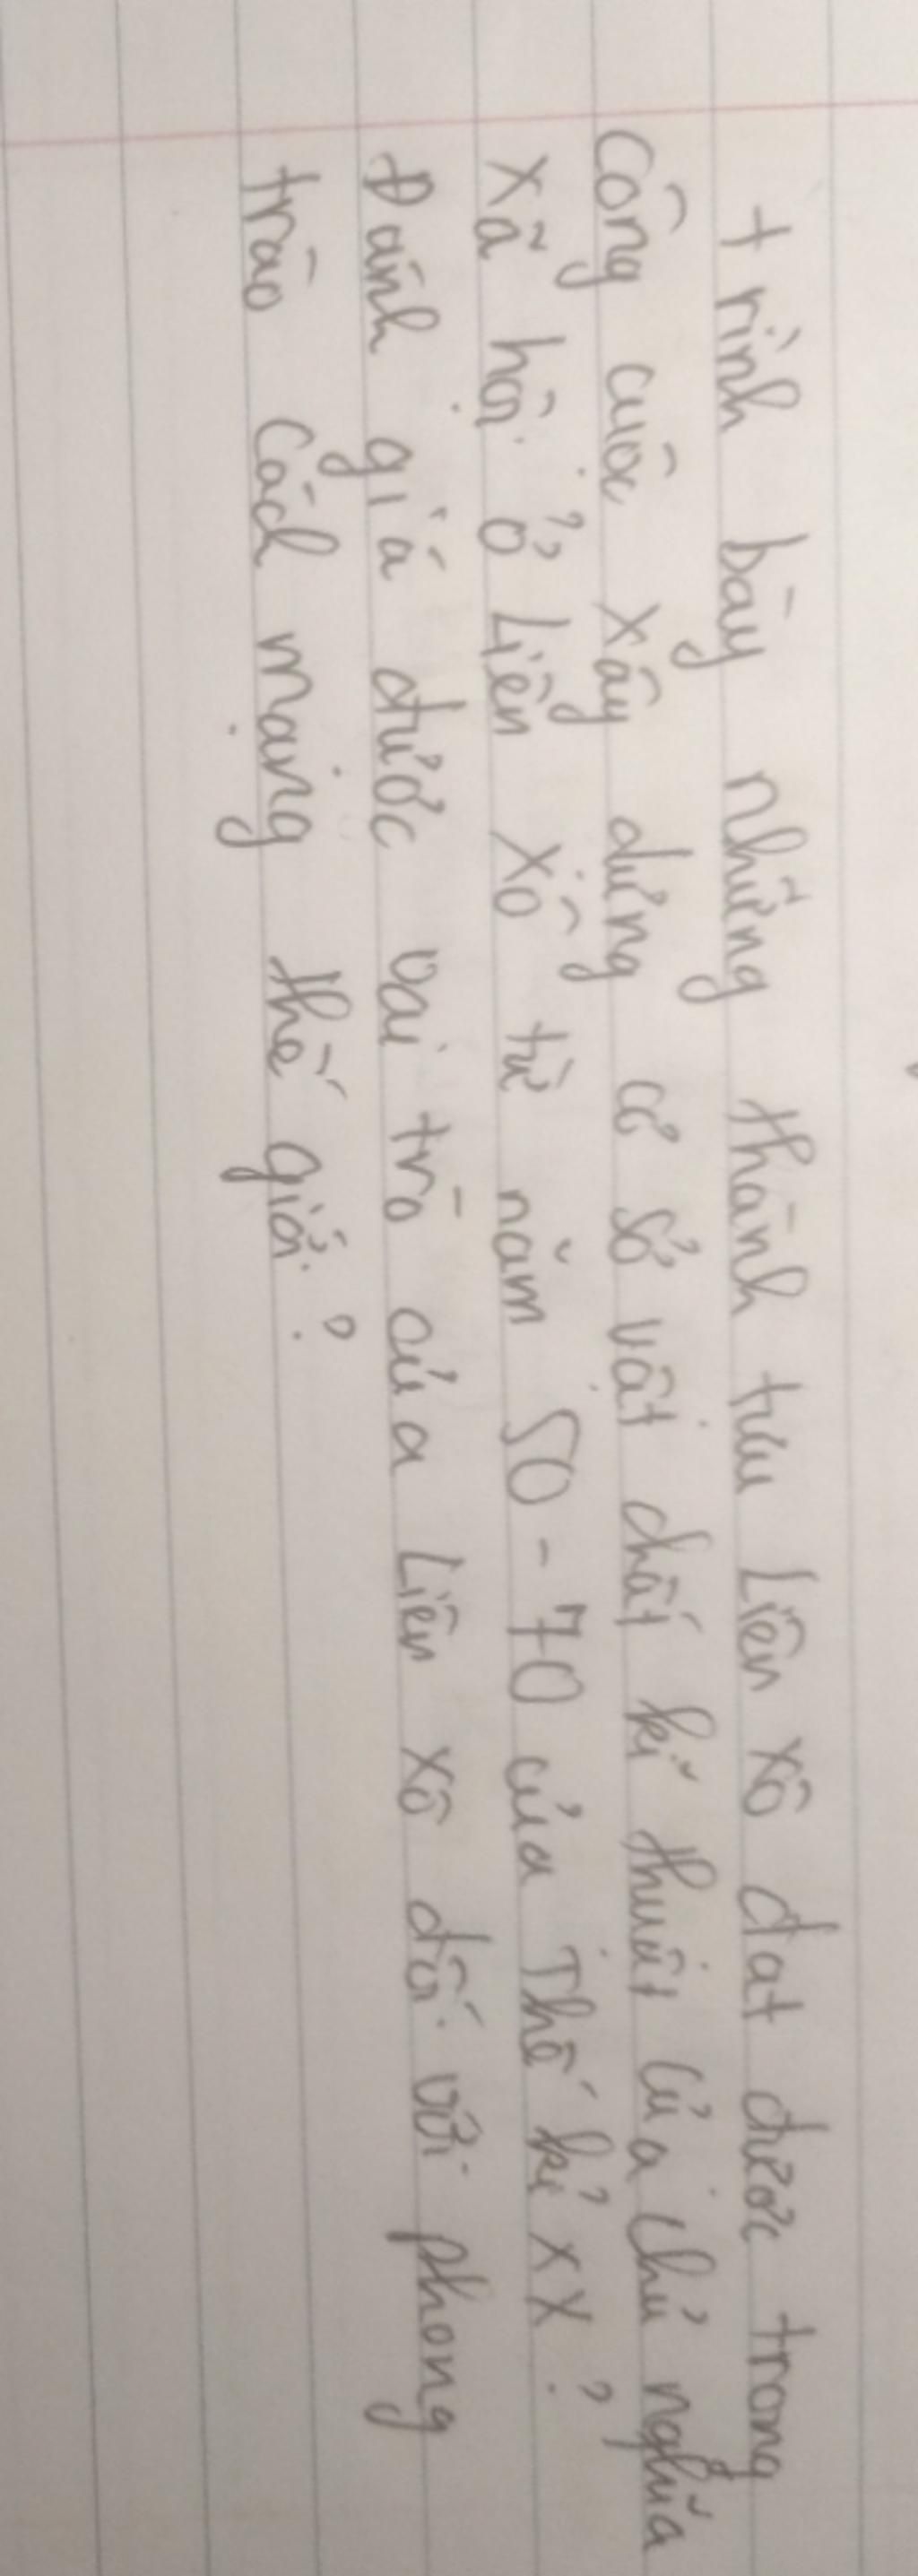 trình bày những thành tựu Liên xô đạt được trong
công cuộc xây dựng cơ sở vật chất kĩ thuật của chủ nghĩa
xã hội ở Liên xô từ năm 50 - 70 của Thế kỉ XX ?
Đánh giá được vai trò của Liên xô đối với phong
trào cách mạng thế giới ?